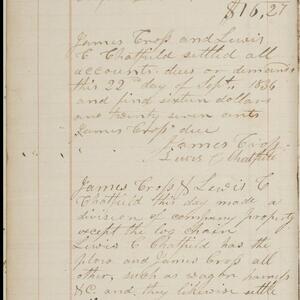 $16,27
James Cross and Lewis
C Chatfield settled all
accounts dues or demands
this 22nd day of Sept, 1856
and find sixteen dollars
and twenty seven cents
James Cross due
James Cross
Lewis C Chatfield
James Cross & Lewis C
Chatfield this day made a
division of company property
except the log chain
Lewis C Chatfield has the
plow and James Cross all
other, such as wagon harness
&C. and they likewise settle